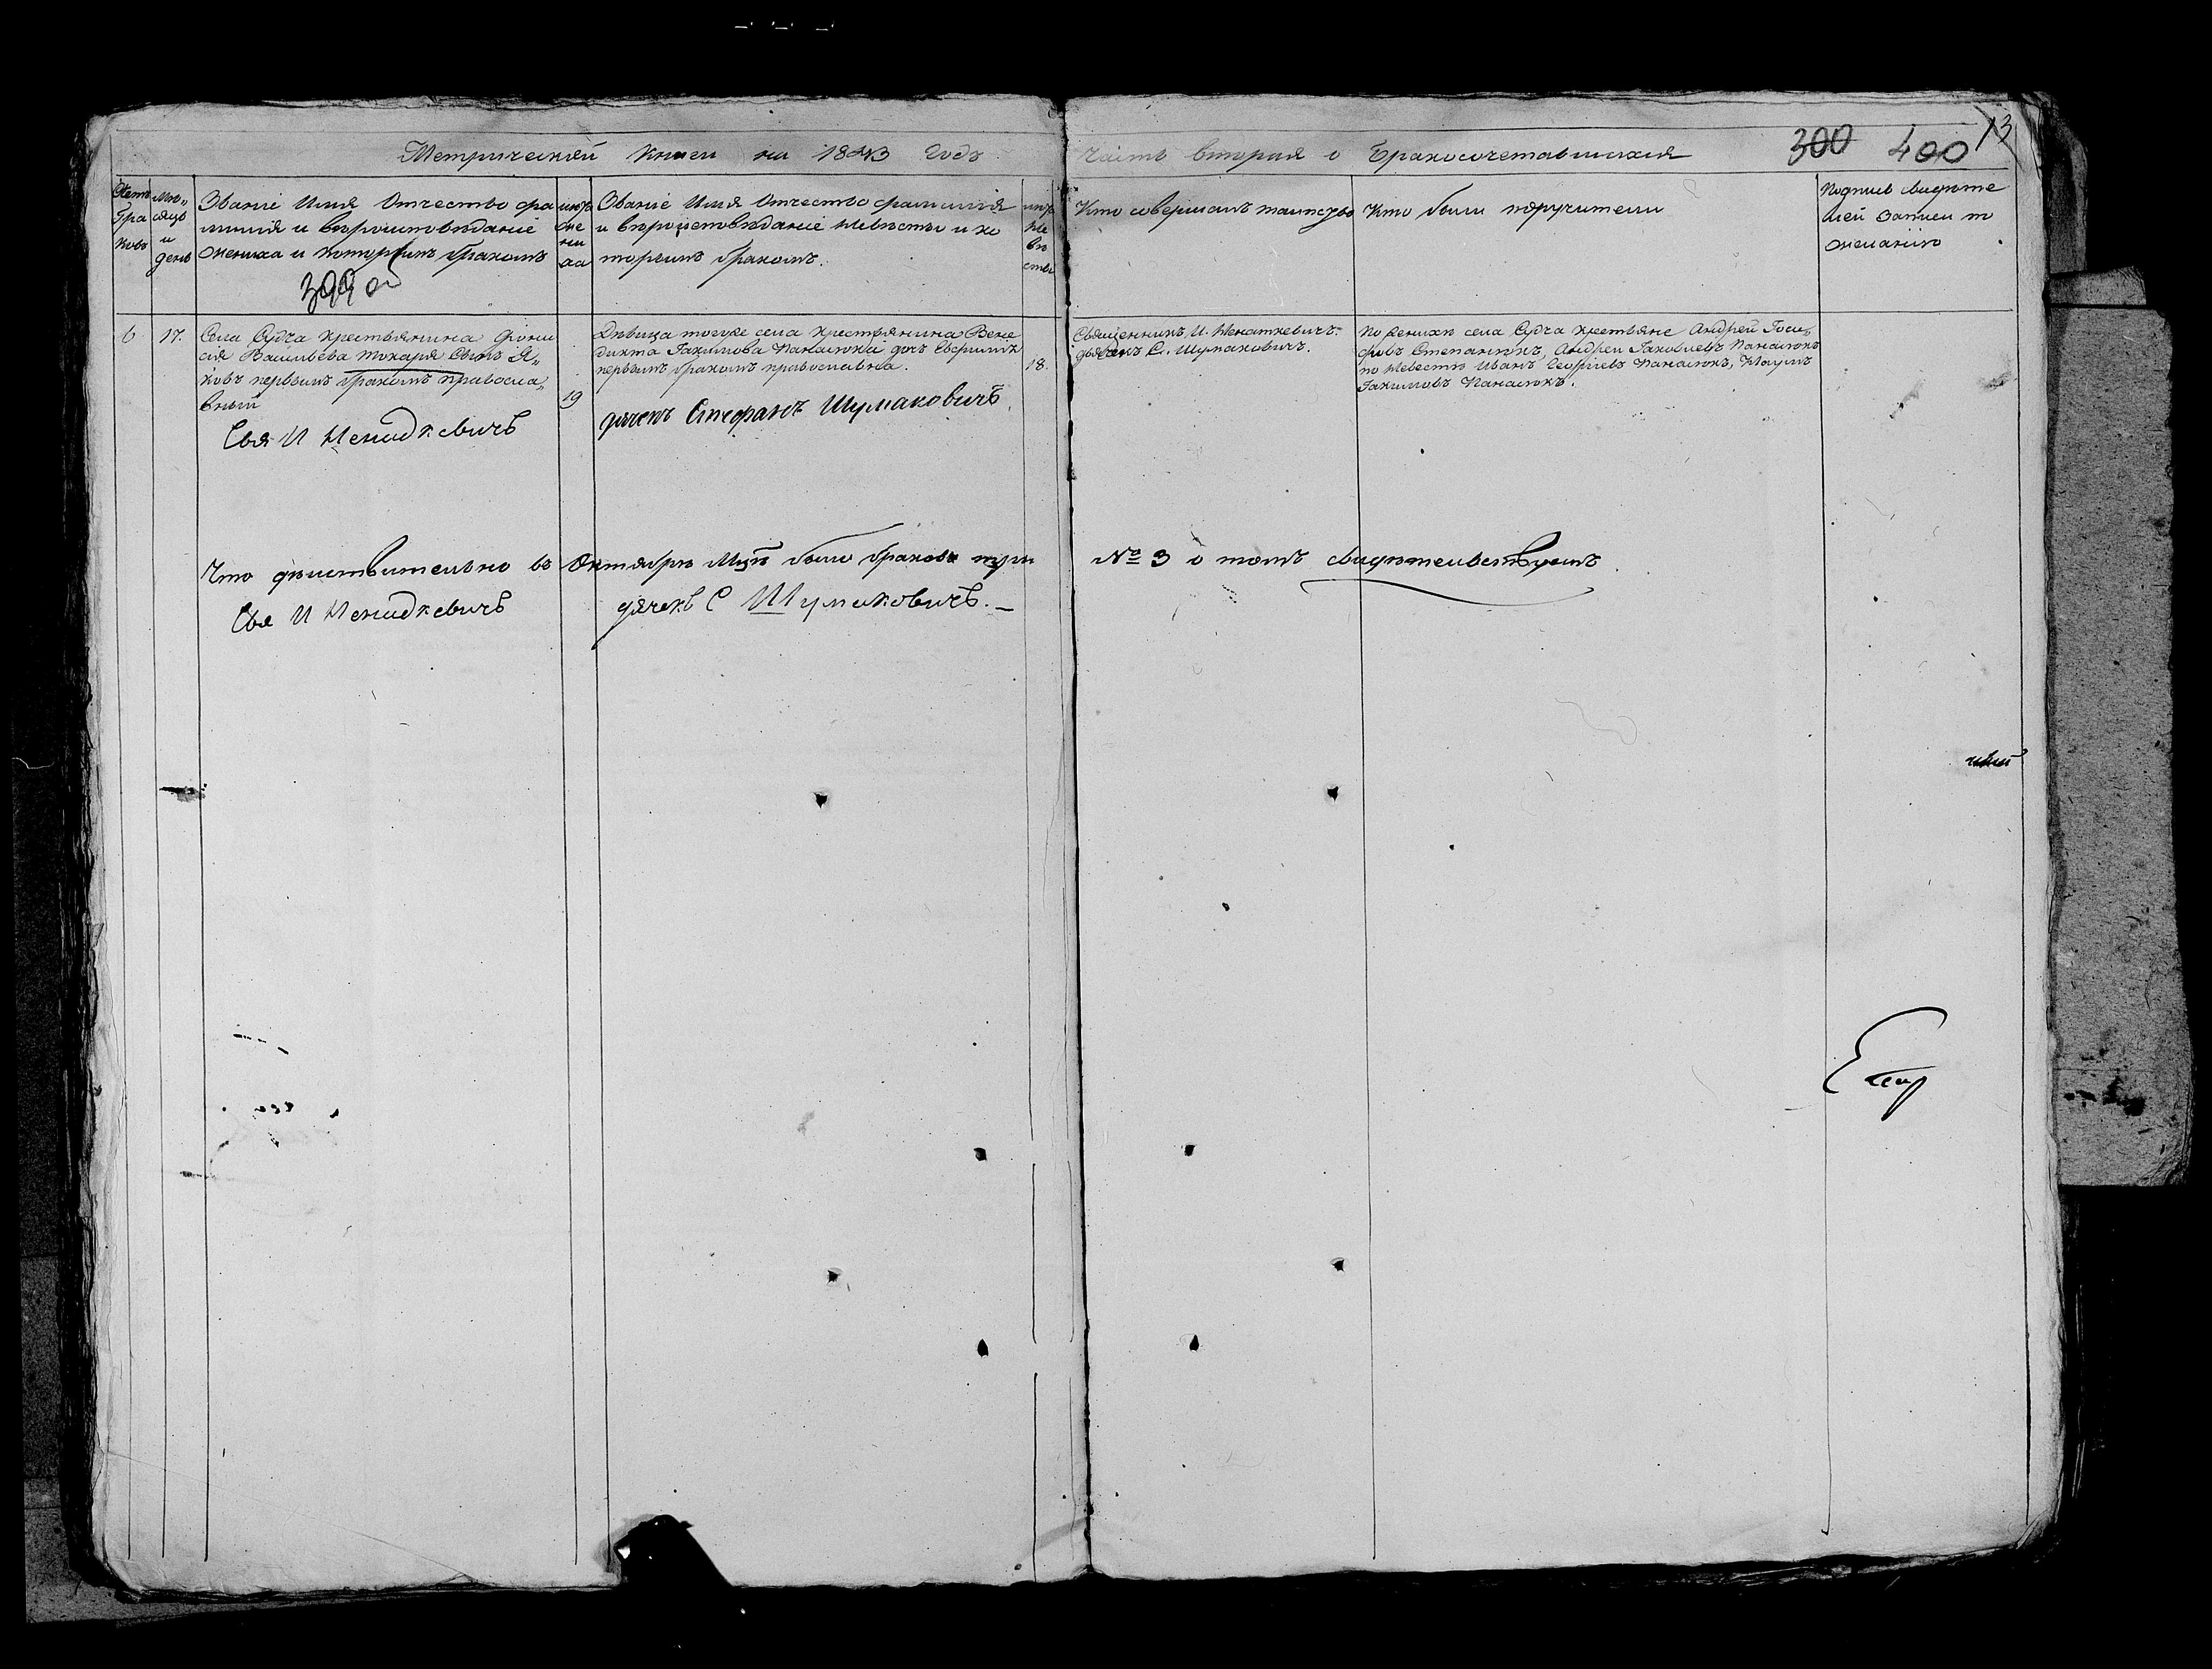 Метрической книги на 1843 годъ
часть вторая о бракосочетавшихся
300 400 13
Счетъ браковъ
Мѣсяцъ и день
Званіе Имя Отчество фа
милія и вѣроисповѣданіе
жениха и которымъ бракомъ
399 об
лѣта жениха
Званіе Имя Отчество фамилія
и вѣроисповѣданіе невѣсты и ко
торымъ бракомъ.
лѣта невѣсты
Кто совершалъ таинство
Кто были поручители
Подпись свидѣте
лей записи по
желанію
6
17.
Села Судча крестьянина Фрони
сія Васильева Токаря Сынъ Я„
ковъ первымъ бракомъ правосла„
вный
19
Дѣвица тогоже села крестьянина Вене
дикта Іакимова Панасюка дочь
первымъ бракомъ православна.
18.
Священникъ И. Ненадкевичъ
дьячекъ С. Шумаковичъ.
По женихѣ села Судча крестьяне Андрей Іоси„
фовъ Степанюкъ, Андрей Іаковлевъ Панасюкъ
по Невестѣ Иванъ Георгіевъ Панасюкъ, Наумъ
Іакимовъ Панасюкъ.
Свя И Ненадкевичъ
дячекъ Стефанъ Шумаковичъ.
Что дѣиствительно въ Октябрѣ Мцѣ было браковъ три № 3 о томъ свидѣтельствуемъ
Свя И Ненадкевичъ
дячекъ С Шумаковичъ.